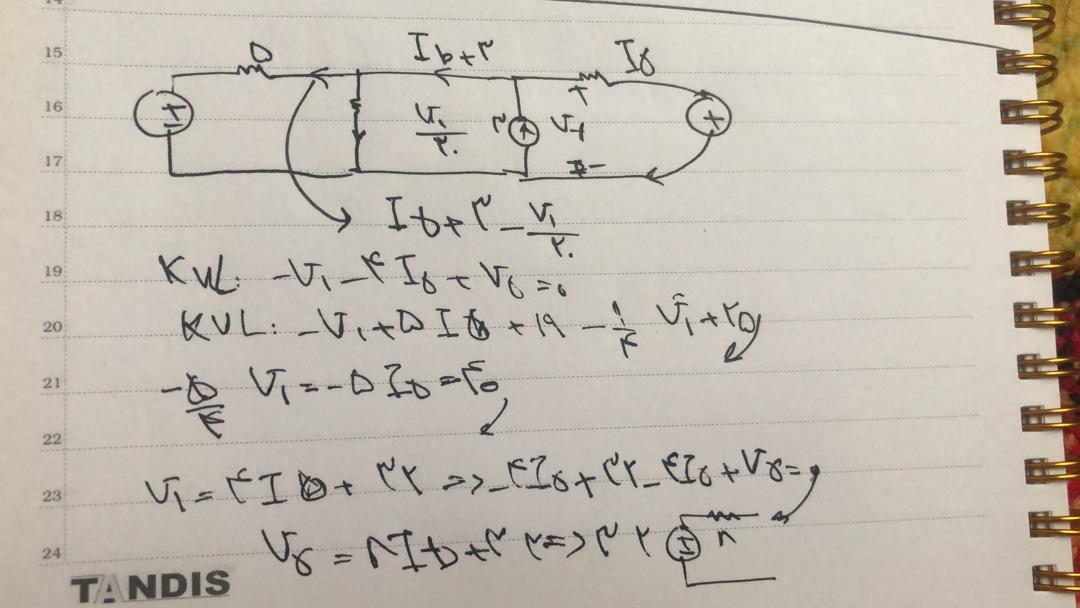 14
15
16
17
18
19
20
21
22
23
24
۵
I₅+۳
I₅
V₁/۲۰
۳
V₁
I₅+۳ - V₁/۲۰
KVL: -V₁ - ۴I₅ + V₅ = ۰
KVL: -V₁ + ۵I₅ + ۱۹ - ۱/۴ V₁ + ۲۵
-۵/۴ V₁ = -۵I₅ = ۴۰
V₁ = ۴I₅ + ۳۲ => -۴I₅ + ۳۲ - ۴I₅ + V₅ = ۰
V₅ = ۸I₅ + ۳۲ => ۳۲ ۸
TANDIS